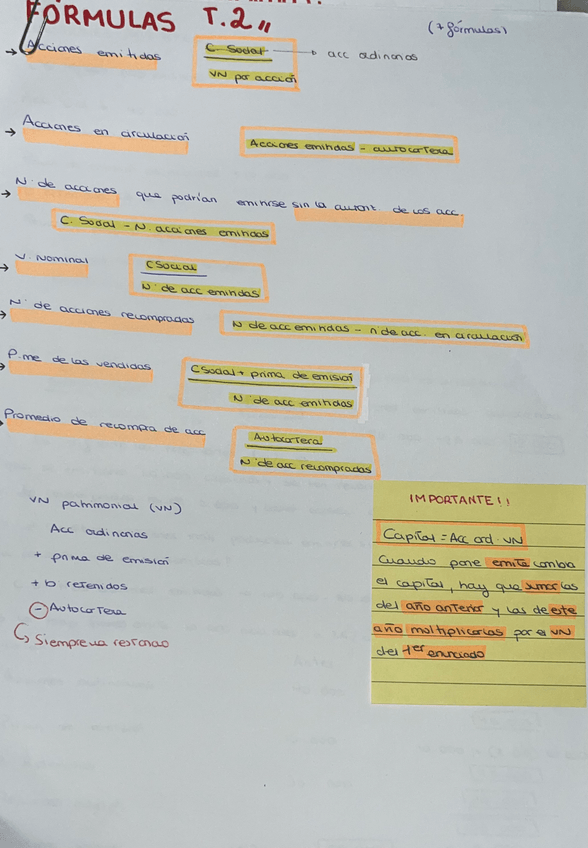 FÓRMULAS T.2,,
(7 fórmulas)
→ Acciones emitidas
C. Social → acc ordinarias
VN por acción
→ Acciones en circulación
Acciones emitidas - autocartera
→ Nº de acciones que podrían emitirse sin la autorit. de los acc.
C. Social - N. acciones emitidas
→ V. Nominal
C Social
Nº de acc emitidas
→ Nº de acciones recompradas
N de acc emitidas - n de acc en circulación
→ P.me de las vendidas
C Social + prima de emisión
Nº de acc emitidas
→ Promedio de recompra de acc
Autocartera
Nº de acc recompradas
VN patrimonial (VN)
Acc ordinarias
+ prima de emisión
+ b retenidos
- Autocartera
Siempre va restando
IMPORTANTE!!
Capital = Acc ord · VN
Cuando pone emite cambia
el capital, hay que sumar las
del año anterior y las de este
año multiplicarlas por el VN
del 1er enunciado